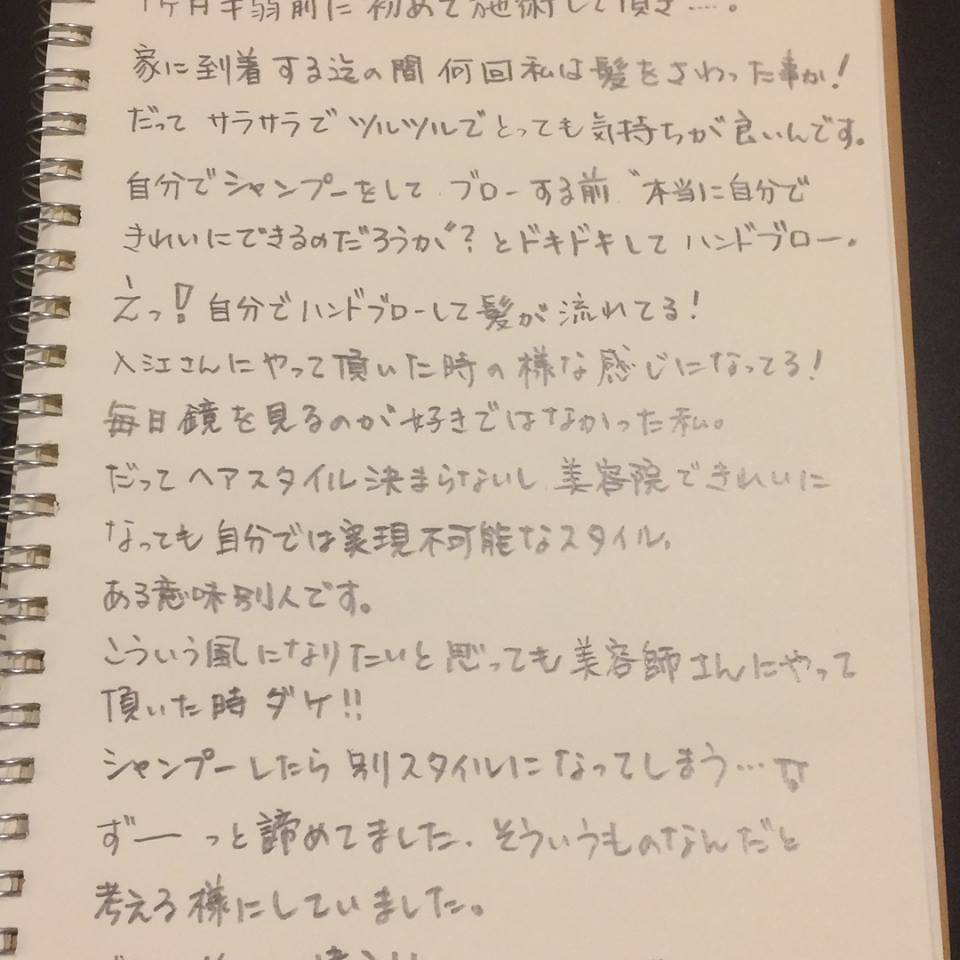 1ヶ月半弱前に初めて施術して頂き…。
家に到着する迄の間何回私は髪をさわった事か!
だって サラサラで ツルツルでとっても気持ちが良いんです。
自分でシャンプーをして ブローする前 〝本当に自分で
きれいにできるのだろうか〞? とドキドキして ハンドブロー。
えっ! 自分でハンドブローして髪が流れてる!
入江さんにやって頂いた時の様な感じになってる!
毎日鏡を見るのが好きではなかった私。
だってヘアスタイル決まらないし 美容院できれいに
なっても自分では実現不可能なスタイル。
ある意味別人です。
こういう風になりたいと思っても美容師さんにやって
頂いた時ダケ!!
シャンプーしたら別スタイルになってしまう…
ず―っと諦めてました. そういうものなんだと
考える様にしていました。